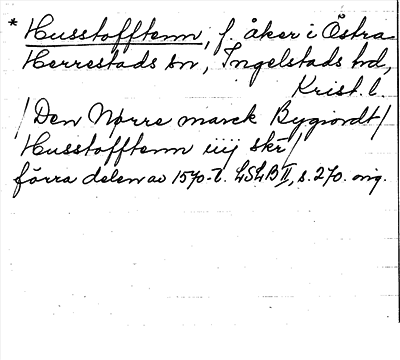 * Husstofftenn, f. åker i Östra
Herrestads sn, Ingelstads hd,
Krist. l.
/Den Nørre marck Bygiordt/
Husstofftenn iiij skr/
förra delen av 1570-t. LSLB II, s. 270. orig.